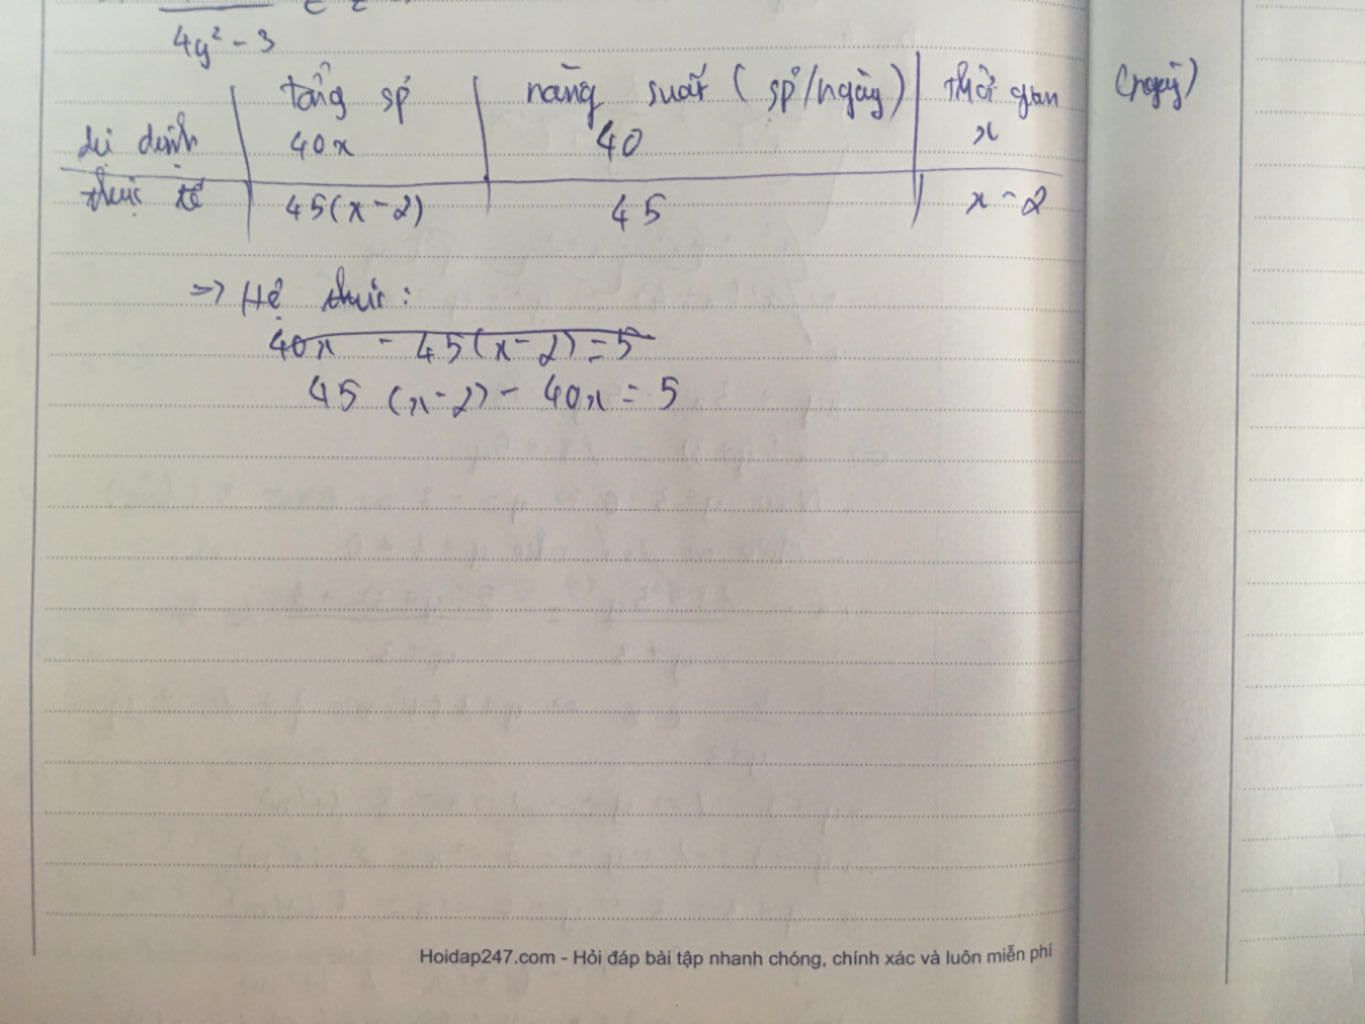 4y² - 3
tổng sp năng suất (sp/ngày) thời gian (ngày)
dự định 40x 40 x
thực tế 45(x-2) 45 x-2
=> Hệ thức:
40x - 45(x-2) = 5
45 (x-2) - 40x = 5
Hoidap247.com - Hỏi đáp bài tập nhanh chóng, chính xác và luôn miễn phí